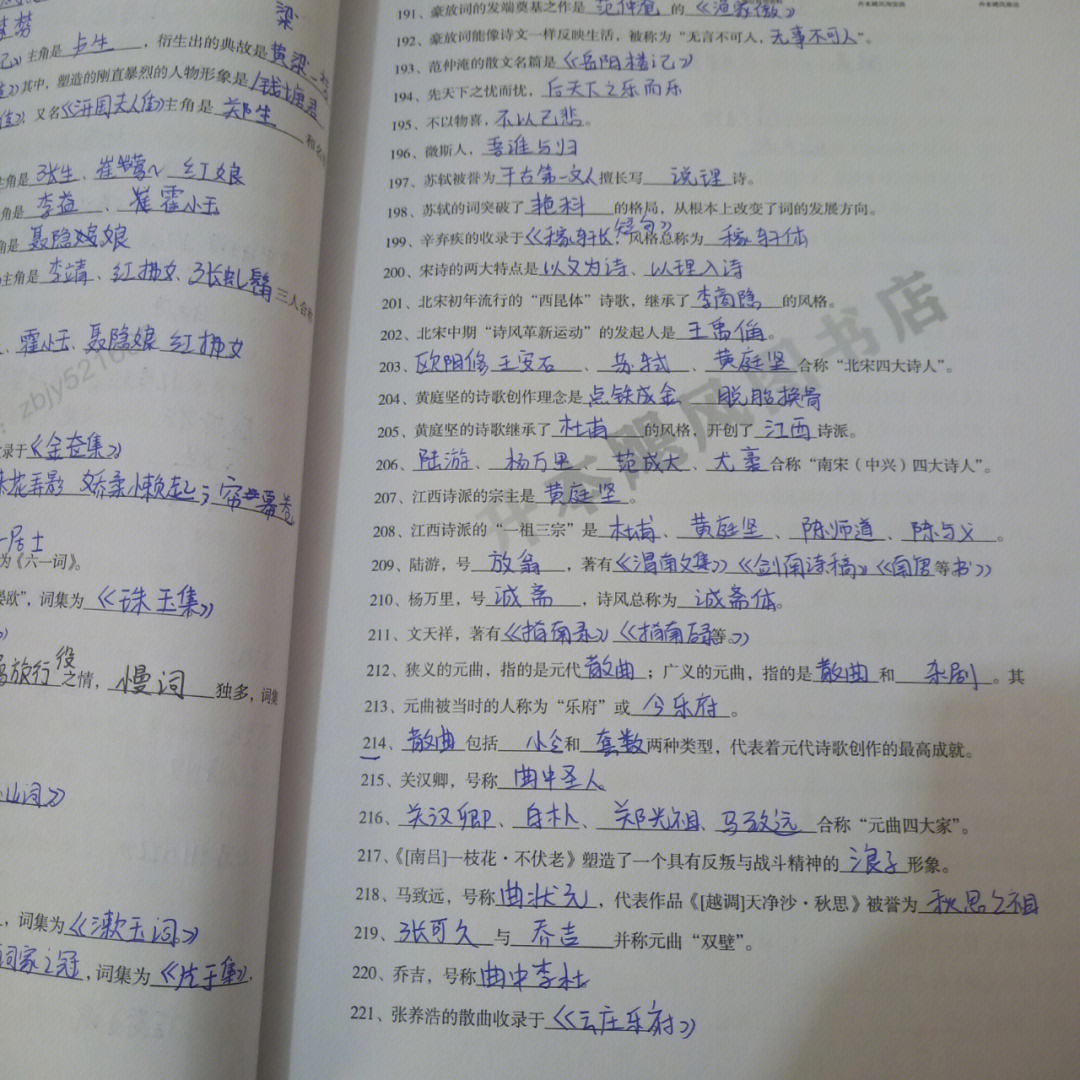 梦
梁
主角是 卢生 ，衍生出的典故是 黄梁一梦
其中，塑造的刚直暴烈的人物形象是 钱塘君
又名《洞囯夫人传》主角是 郑生
主角是 张生、崔莺莺、红娘
角是 李益、霍小玉
角是 聂隐娘
主角是 李靖、红拂女、3长虬髯 三人合称
霍小玉 聂隐娘 红拂女
zbjy5216
录于《金奁集》
珠花弄影 娇柔懒起；帘幕卷
一居士
为《六一词》。
晏欧”，词集为《珠玉集》
旅行役之情，慢词 独多，词集
山词》
，词集为《漱玉词》
词家之冠，词集为《片玉集》.
191、豪放词的发端奠基之作是 范仲淹 的《渔家傲》
192、豪放词能像诗文一样反映生活，被称为“无言不可人，无事不可人”。
193、范仲淹的散文名篇是《岳阳楼记》
194、先天下之忧而忧，后天下之乐而乐
195、不以物喜，不以己悲。
196、微斯人，吾谁与归
197、苏轼被誉为 千古第一文人 擅长写 说理 诗。
198、苏轼的词突破了 艳科 的格局，从根本上改变了词的发展方向。
199、辛弃疾的收录于《稼轩长短句》风格总称为 稼轩体
200、宋诗的两大特点是 以文为诗、以理入诗
201、北宋初年流行的“西昆体”诗歌，继承了 李商隐 的风格。
202、北宋中期“诗风革新运动”的发起人是 王禹偁。
203、欧阳修 王安石、苏轼、黄庭坚 合称“北宋四大诗人”。
204、黄庭坚的诗歌创作理念是 点铁成金、脱胎换骨
205、黄庭坚的诗歌继承了 杜甫 的风格，开创了 江西 诗派。
206、陆游、杨万里、范成大、尤袤 合称“南宋（中兴）四大诗人”。
207、江西诗派的宗主是 黄庭坚。
208、江西诗派的“一祖三宗”是 杜甫、黄庭坚、陈师道、陈与义。
209、陆游，号 放翁 ，著有《渭南文集》《剑南诗稿》《南唐等书》
210、杨万里，号 诚斋 ，诗风总称为 诚斋体。
211、文天祥，著有《指南录》《指南后录等。》
212、狭义的元曲，指的是元代 散曲 ；广义的元曲，指的是 散曲 和 杂剧 。其
213、元曲被当时的人称为“乐府”或 今乐府 。
214、散曲 包括 小令 和 套数 两种类型，代表着元代诗歌创作的最高成就。
215、关汉卿，号称 曲中圣人
216、关汉卿、白朴、郑光祖、马致远 合称“元曲四大家”。
217、《[南吕]一枝花·不伏老》塑造了一个具有反叛与战斗精神的 浪子 形象。
218、马致远，号称 曲状元 ，代表作品《[越调]天净沙·秋思》被誉为 秋思之祖
219、张可久 与 乔吉 并称元曲“双璧”。
220、乔吉，号称 曲中李杜
221、张养浩的散曲收录于《云庄乐府》
升本飓风图书店